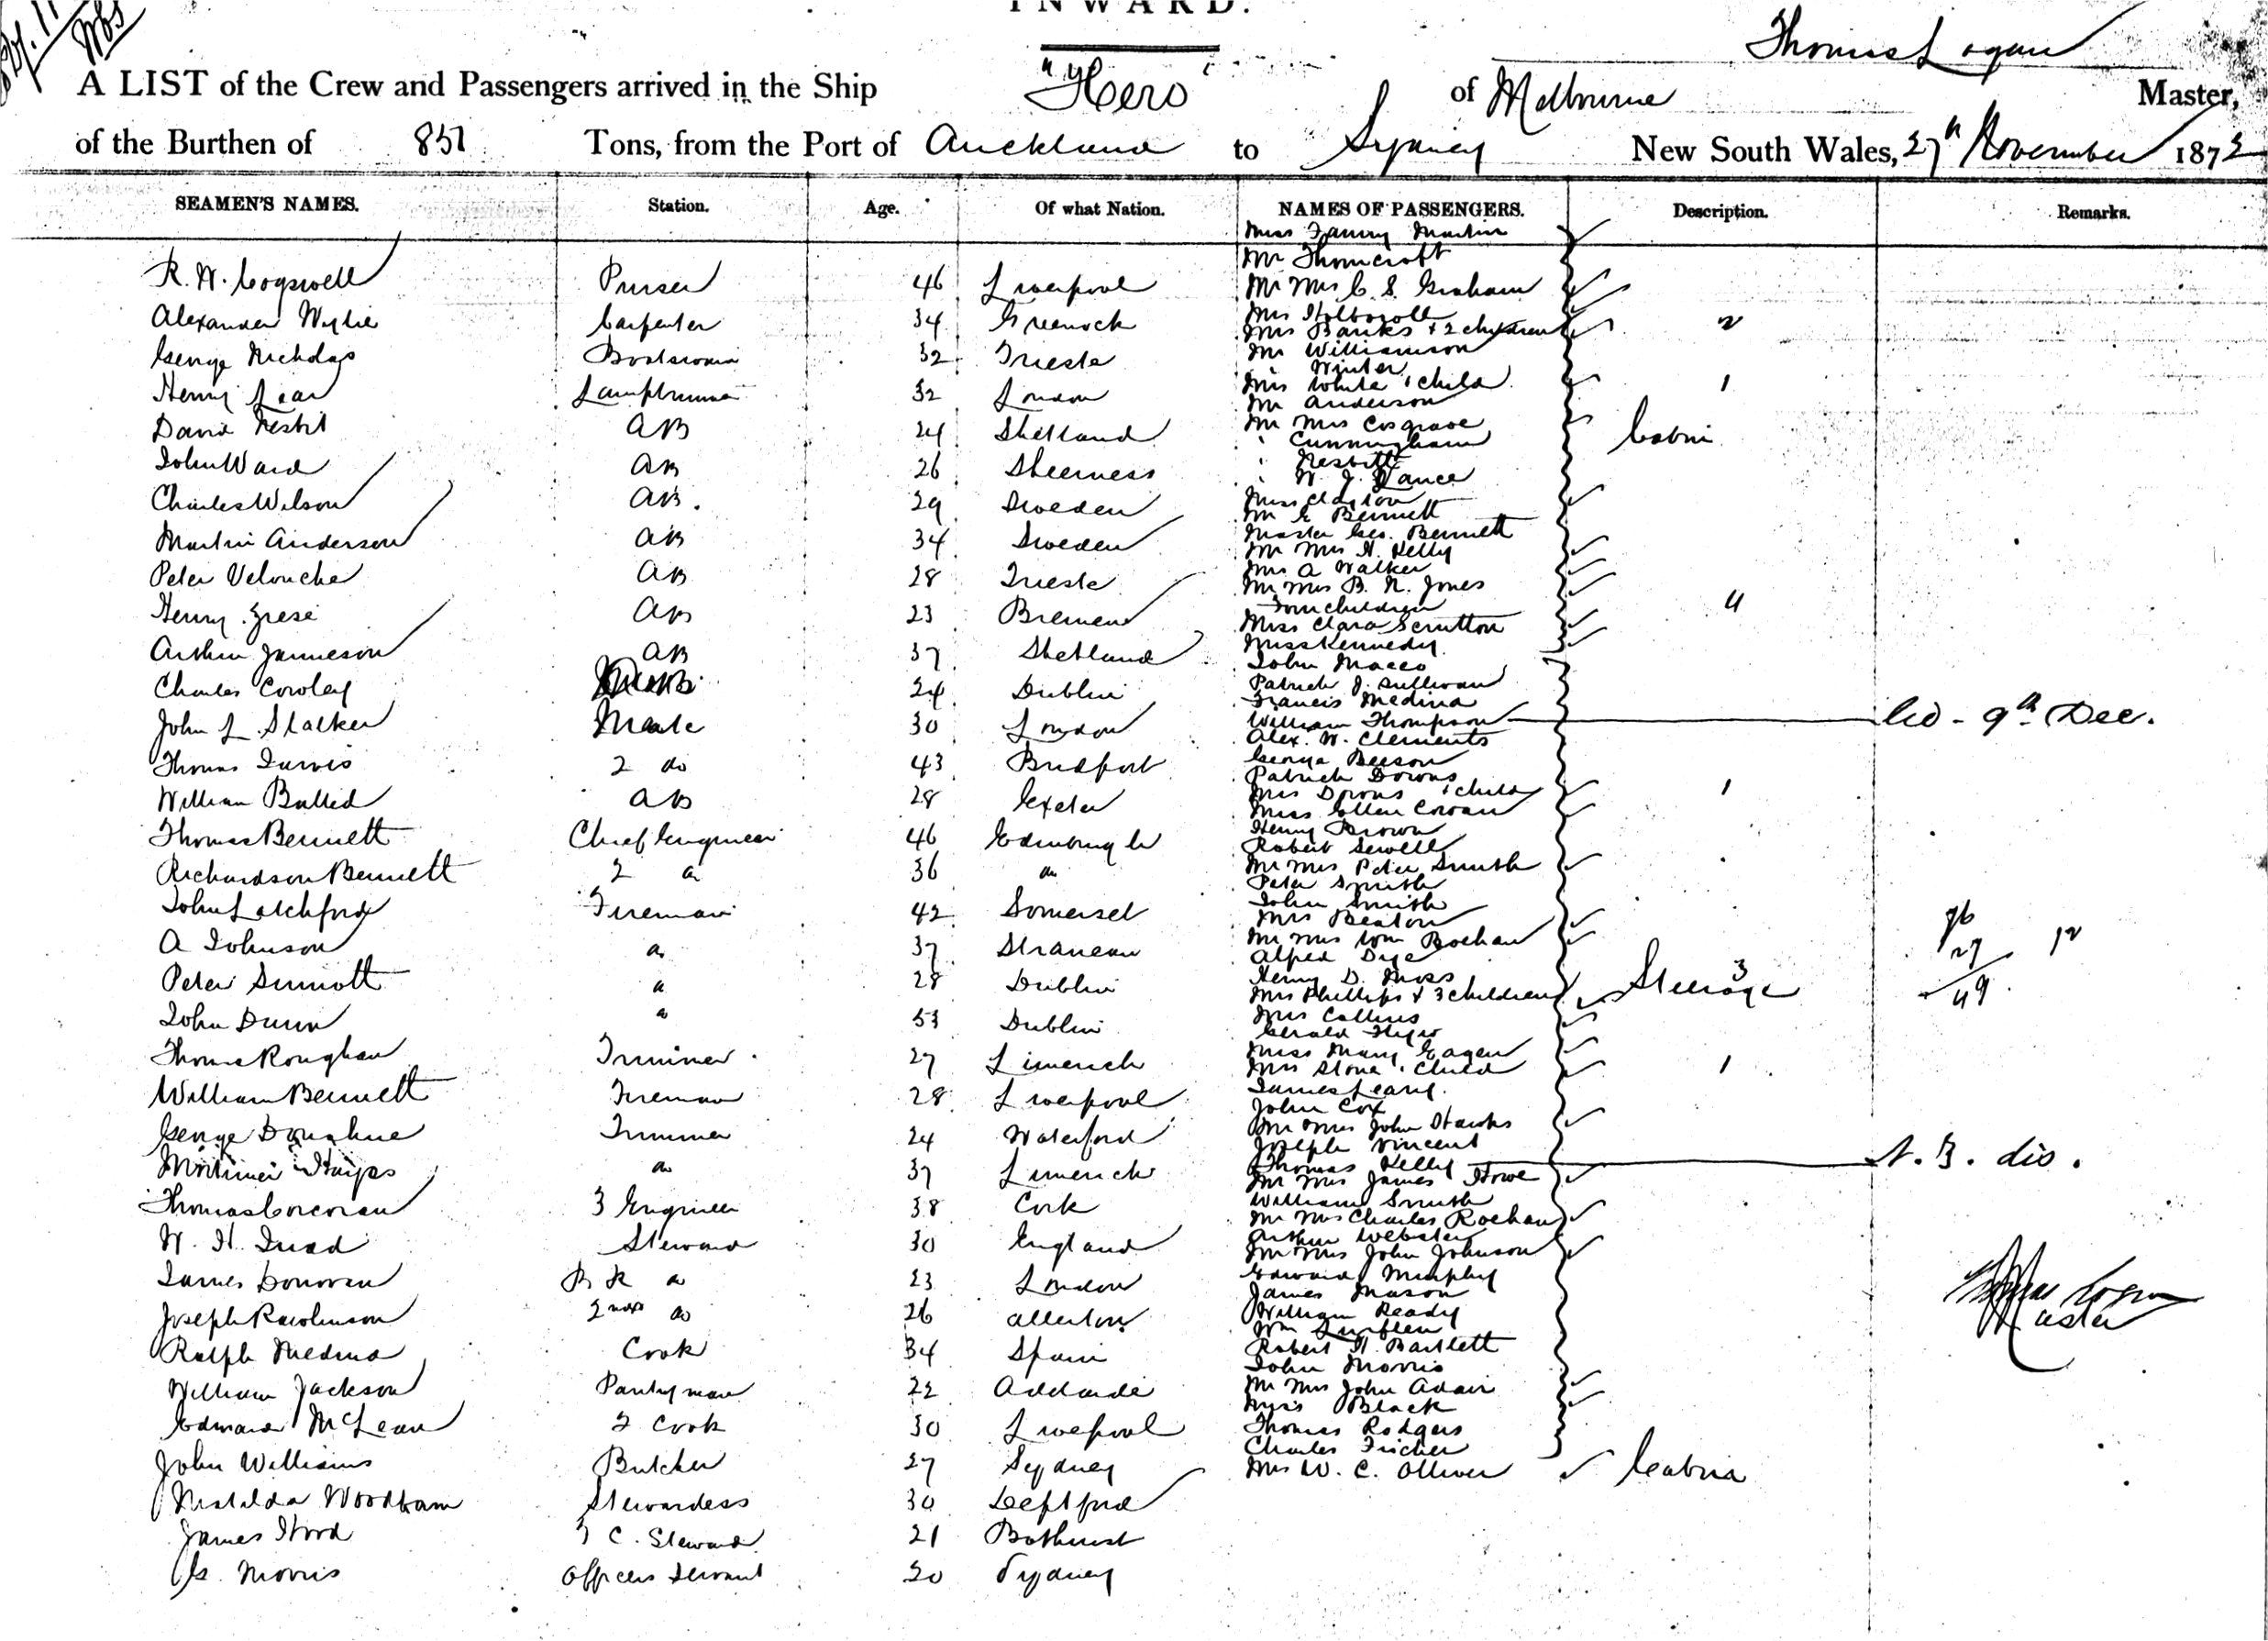 INWARD.
Thomas Logan
A LIST of the Crew and Passengers arrived in the Ship "Hero" of Melbourne Master,
of the Burthen of 851 Tons, from the Port of Auckland to Sydney New South Wales, 27th November 1872
SEAMEN'S NAMES. Station. Age. Of what Nation. NAMES OF PASSENGERS. Description. Remarks.
R. W. Cogswell Purser 46 Liverpool
Alexander Wylie Carpenter 34 Greenock
George Nicholas Boatswain 32 Trieste
Henry Lear Lamptrimmer 32 London
David Nesbit AB 24 Shetland
John Ward AB 26 Sheerness
Charles Wilson AB. 29 Sweden
Martin Anderson AB 34 Sweden
Peter Velouche AB 28 Trieste
Henry Frese AB 23 Bremen
Arthur Jamieson AB 37 Shetland
Charles Cowley 24 Dublin
John L. Stalker Mate 30 London
Thomas Jarvis 2 do 43 Bridport
William Balled AB 28 Exeter
Thomas Bennett Chief Engineer 46 Edinburgh
Richardson Bennett 2 do 36 do
John Latchford Fireman 42 Somerset
A Johnson do 37
Peter Sinnott do 28 Dublin
John Dunn do 53 Dublin
Thomas Roughan Trimmer 27 Limerick
William Bennett Fireman 28 Liverpool
George Donahue Trimmer 24 Waterford
Mortimer do 37 Limerick
Thomas Corcoran 3 Engineer 38 Cork
W. H. Steward 30 England
James Donovan B K do 23 London
Joseph Rawlinson 2nd do 26 Allerton
Ralph Medina Cook 34 Spain
William Jackson Pantryman 22 Adelaide
Edward McLean 2 Cook 30 Liverpool
John Williams Butcher 27 Sydney
Matilda Woodham Stewardess 30 Deptford
James Wood C. Steward 21 Bathurst
G. Morris Officers Servant 20 Sydney
Miss Fanny Martin
Mr Thorncroft
Mr Mrs C. S. Graham
Mrs
Mrs Banks + 2 children 2
Mr Williamson
" Winter
Mrs White & child 1
Mr Anderson
Mr Mrs Cosgrave Cabin
" Cunningham
" Nesbitt
" W. J. Vance
Miss Clayton
Mr E Bennett
Master Geo. Bennett
Mr Mrs H. Kelly
Mrs A Walker
Mr Mrs B. N. Jones
Four children 4
Miss Clara Scrutton
Miss Kennedy
John Macco
Patrick J. Sullivan
Francis Medina
William Thompson
Alex. W. Clements
George Beeson
Patrick Downs
Mrs Downs & child 1
Miss Ellen Cowan
Henry Brown
Robert Sewell
Mr Mrs Peter Smith
Peter Smith
John Smith
Mrs Beaton
Mr Mrs Wm Bochan
Alfred Dye
Henry D. Moss
Mrs Phillips & 3 children 3 Steerage
Mrs Collins
Gerald
Miss Mary Eagan
Mrs Stone & child 1
James Leary
John Cox
Mr Mrs John Hawks
Joseph Vincent
Thomas Kelly
Mr Mrs James Howe
William Smith
Mr Mrs Charles Rochan
Arthur Webster
Mr Mrs John Johnson
Edward Murphy
James Mason
William Ready
Wm
Robert H. Bartlett
John Morris
Mr Mrs John Adair
Miss Black
Thomas Rodgers
Charles Fischer
Mrs W. C. Olliver Cabin
9th Dec.
76
27 12
49
dis.
Thomas Logan
Master